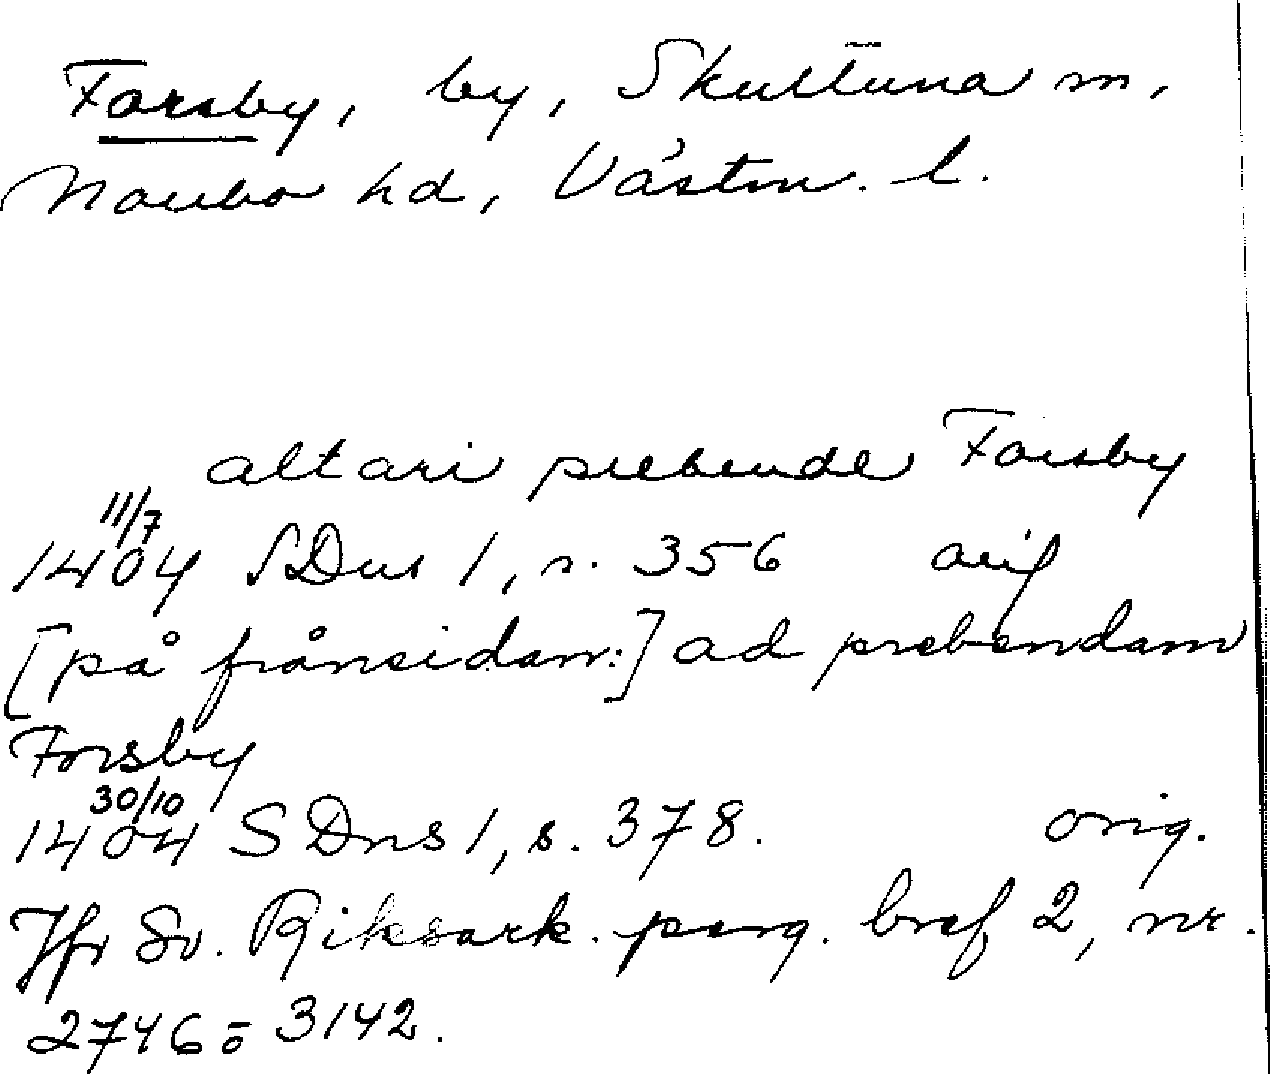 Forsby, by, Skultuna sn,
Norrbo hd, Västm. l.
altari prebende Forsby
11/7
1404 SDns 1, s. 356 orig
[på frånsidan:] ad prebendam
Forsby
30/10
1404 SDns 1, s. 378. orig.
Jfr Sv. Riksark. perg. bref 2, nr.
2746 o 3142.